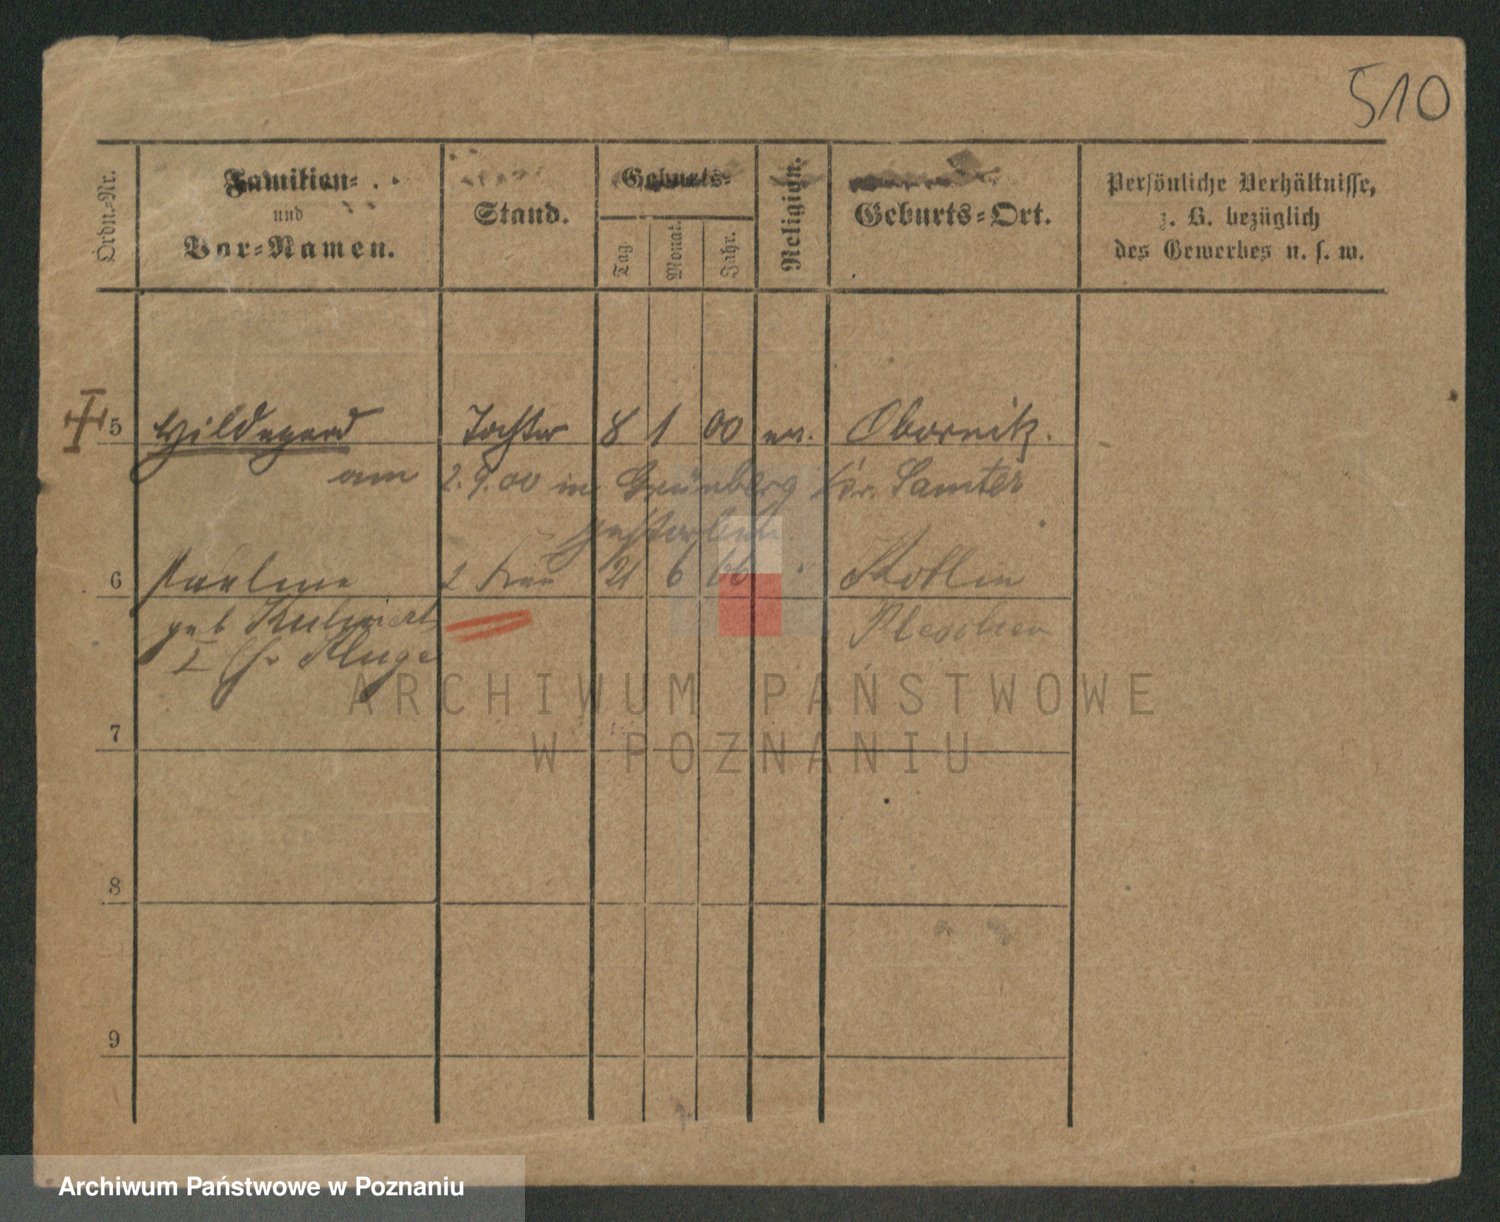 510
Ordn.-Nr.
Familien-
und
Vor-Namen.
Stand.
Geburts-
Tag
Monat.
Jahr.
Religion.
Geburts-Ort.
Persönliche Verhältnisse,
z. B. bezüglich
des Gewerbes u. s. w.
5 Hildegard Tochter 8 1 00 ev. Obornik.
am 2.9.00 in Grünberg Kr. Samter
gestorben
6 Pauline 2 Frau 21 6 66 Kotlin
geb Pleschen
I Kluge
7
8
9
ARCHIWUM PAŃSTWOWE
W POZNANIU
Archiwum Państwowe w Poznaniu